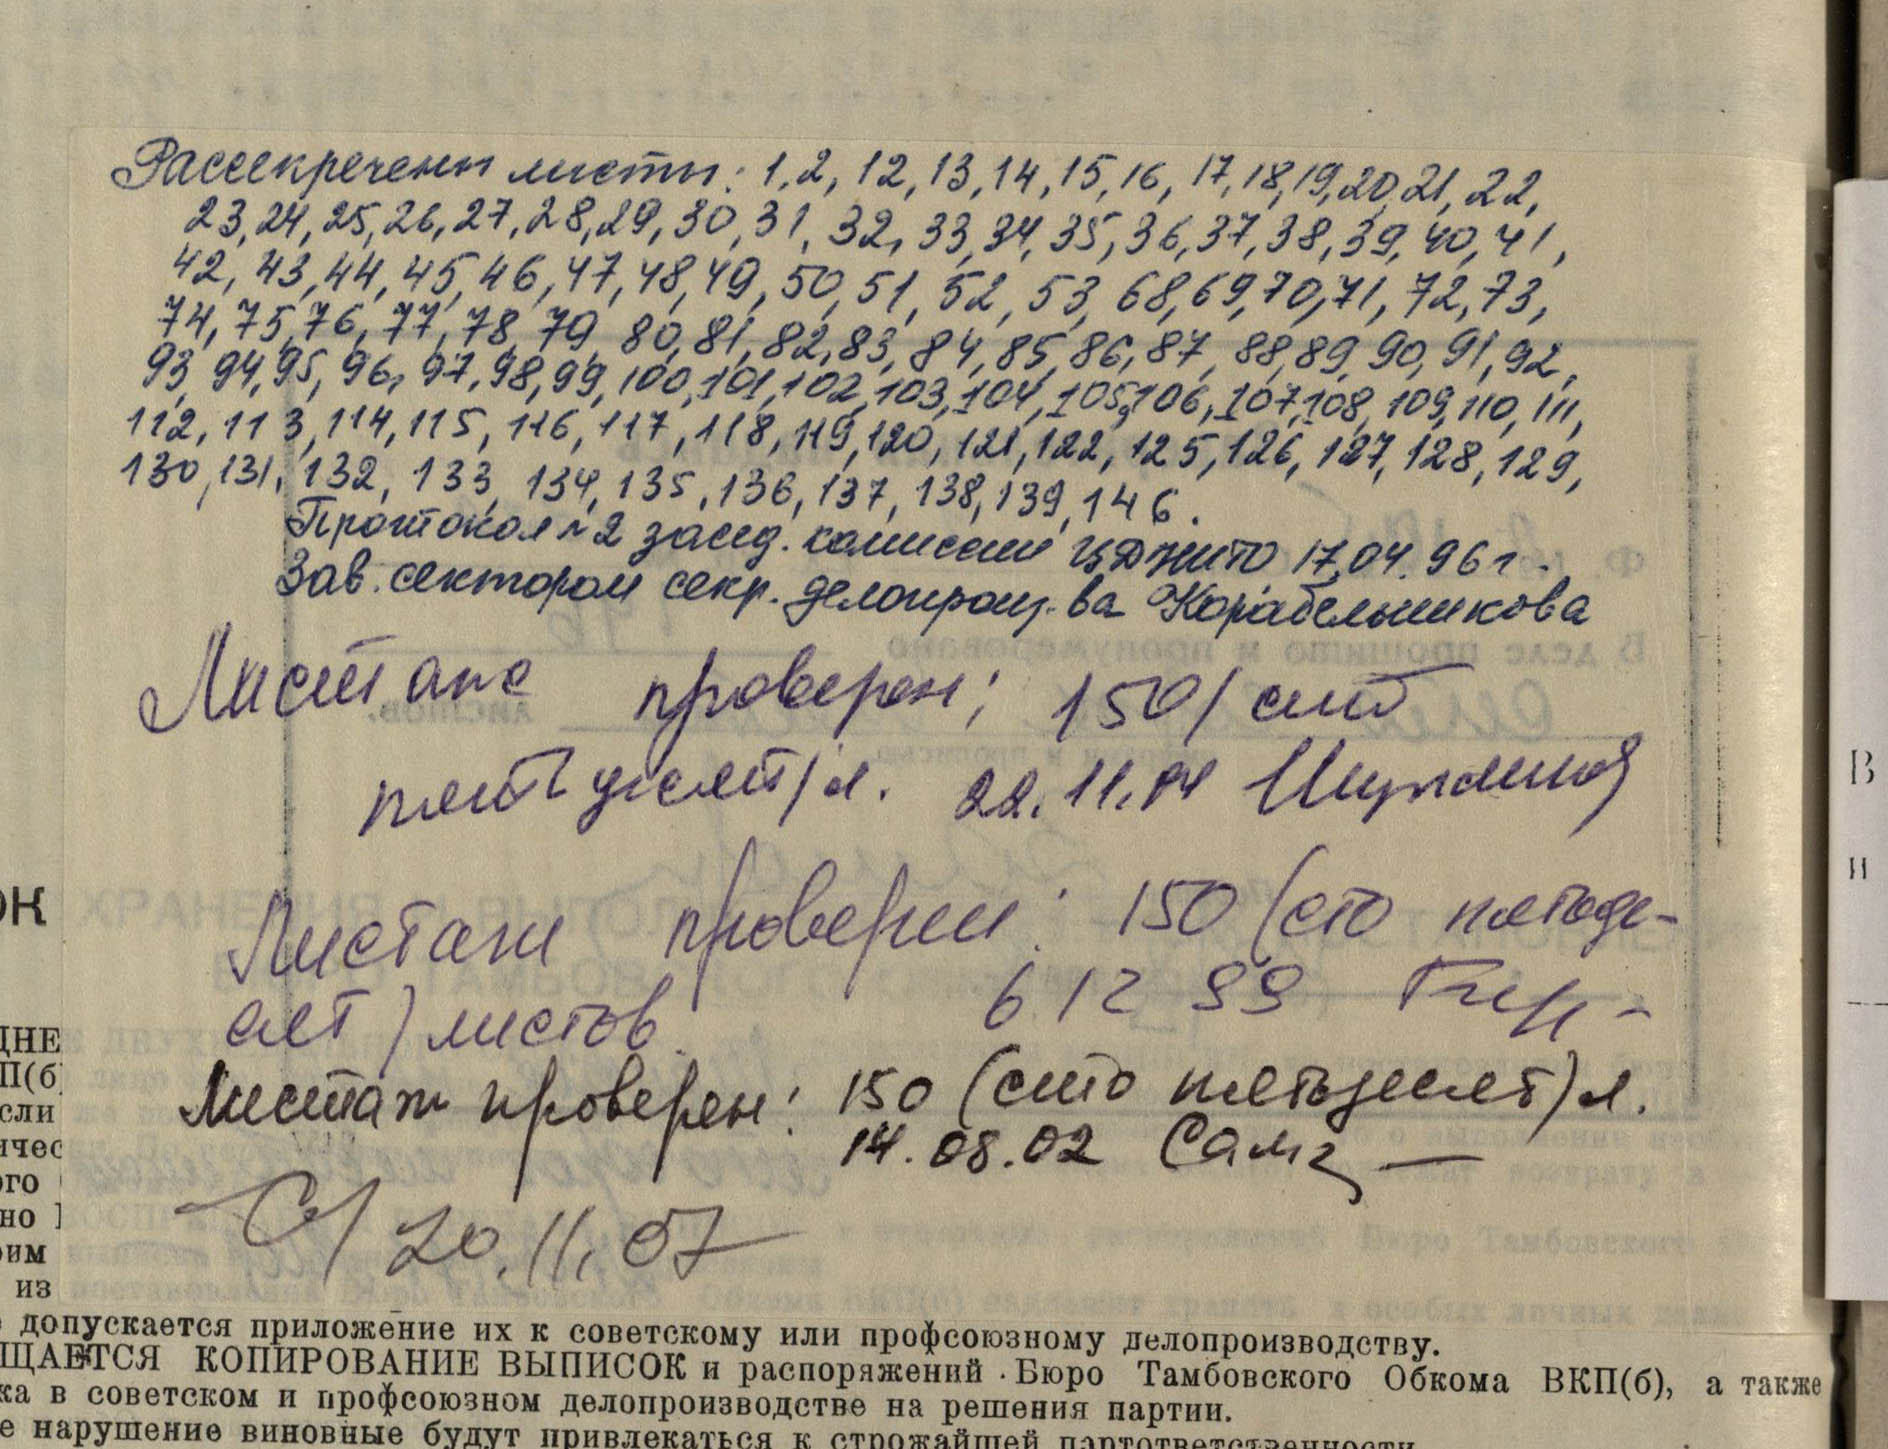 Рассекречены листы: 1,2, 12, 13, 14, 15, 16, 17, 18, 19, 20, 21, 22,
23, 24, 25, 26, 27, 28, 29, 30, 31, 32, 33, 34, 35, 36, 37, 38, 39, 40, 41,
42, 43, 44, 45, 46, 47, 48, 49, 50, 51, 52, 53, 68, 69, 70, 71, 72, 73,
74, 75, 76, 77, 78, 79, 80, 81, 82, 83, 84, 85, 86, 87, 88, 89, 90, 91, 92,
93, 94, 95, 96, 97, 98, 99, 100, 101, 102, 103, 104, 105, 106, 107, 108, 109, 110, 111,
112, 113, 114, 115, 116, 117, 118, 119, 120, 121, 122, 125, 126, 127, 128, 129,
130, 131, 132, 133, 134, 135, 136, 137, 138, 139, 146.
Протокол № 2 засед. комиссии ЦДНИТО 17.04.96 г.
Зав. сектором секр. делопроиз-ва Корабельникова
Листаж проверен: 150 /сто
пятьдесят/ л. 22.11.
Листаж проверен: 150 (сто пятьде-
сят) листов. 6 12 99
Листаж проверен: 150 (сто пятьдесят) л.
14.08.02
20.11.07
ОК
ДНЕ
П(б
сли
ичес
ого
но
оим
из
допускается приложение их к советскому или профсоюзному делопроизводству.
ЩАЕТСЯ КОПИРОВАНИЕ ВЫПИСОК и распоряжений Бюро Тамбовского Обкома ВКП(б), а также
ка в советском и профсоюзном делопроизводстве на решения партии.
е нарушение виновные будут привлекаться к строжайшей партответственности
В
и